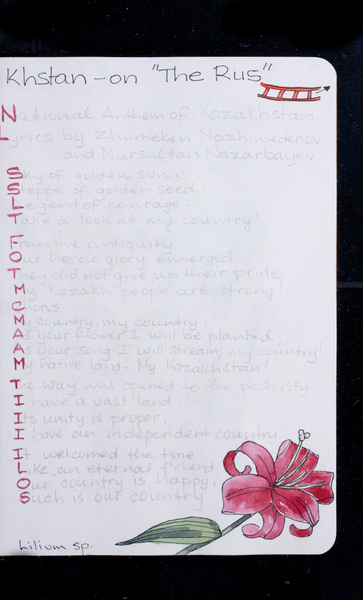 Khstan - on "The Rus"
National Anthem of Kazakhstan
Lyrics by Zhumeken Nazhimedenov
and Nursultan Nazarbayev
Sky of golden sun,
Steppe of golden seed,
Legend of courage,
Take a look at my country!
From the antiquity
Our heroic glory emerged
They did not give up their pride
My Kazakh people are strong!
Chorus
My country, my country,
As your flower I will be planted,
As your song I will stream, my country!
My native land - My Kazakhstan!
The way was opened to the posterity
I have a vast land
Its unity is proper,
I have an independent country
It welcomed the time
Like an eternal friend
Our country is happy,
Such is our country
Lilium sp.